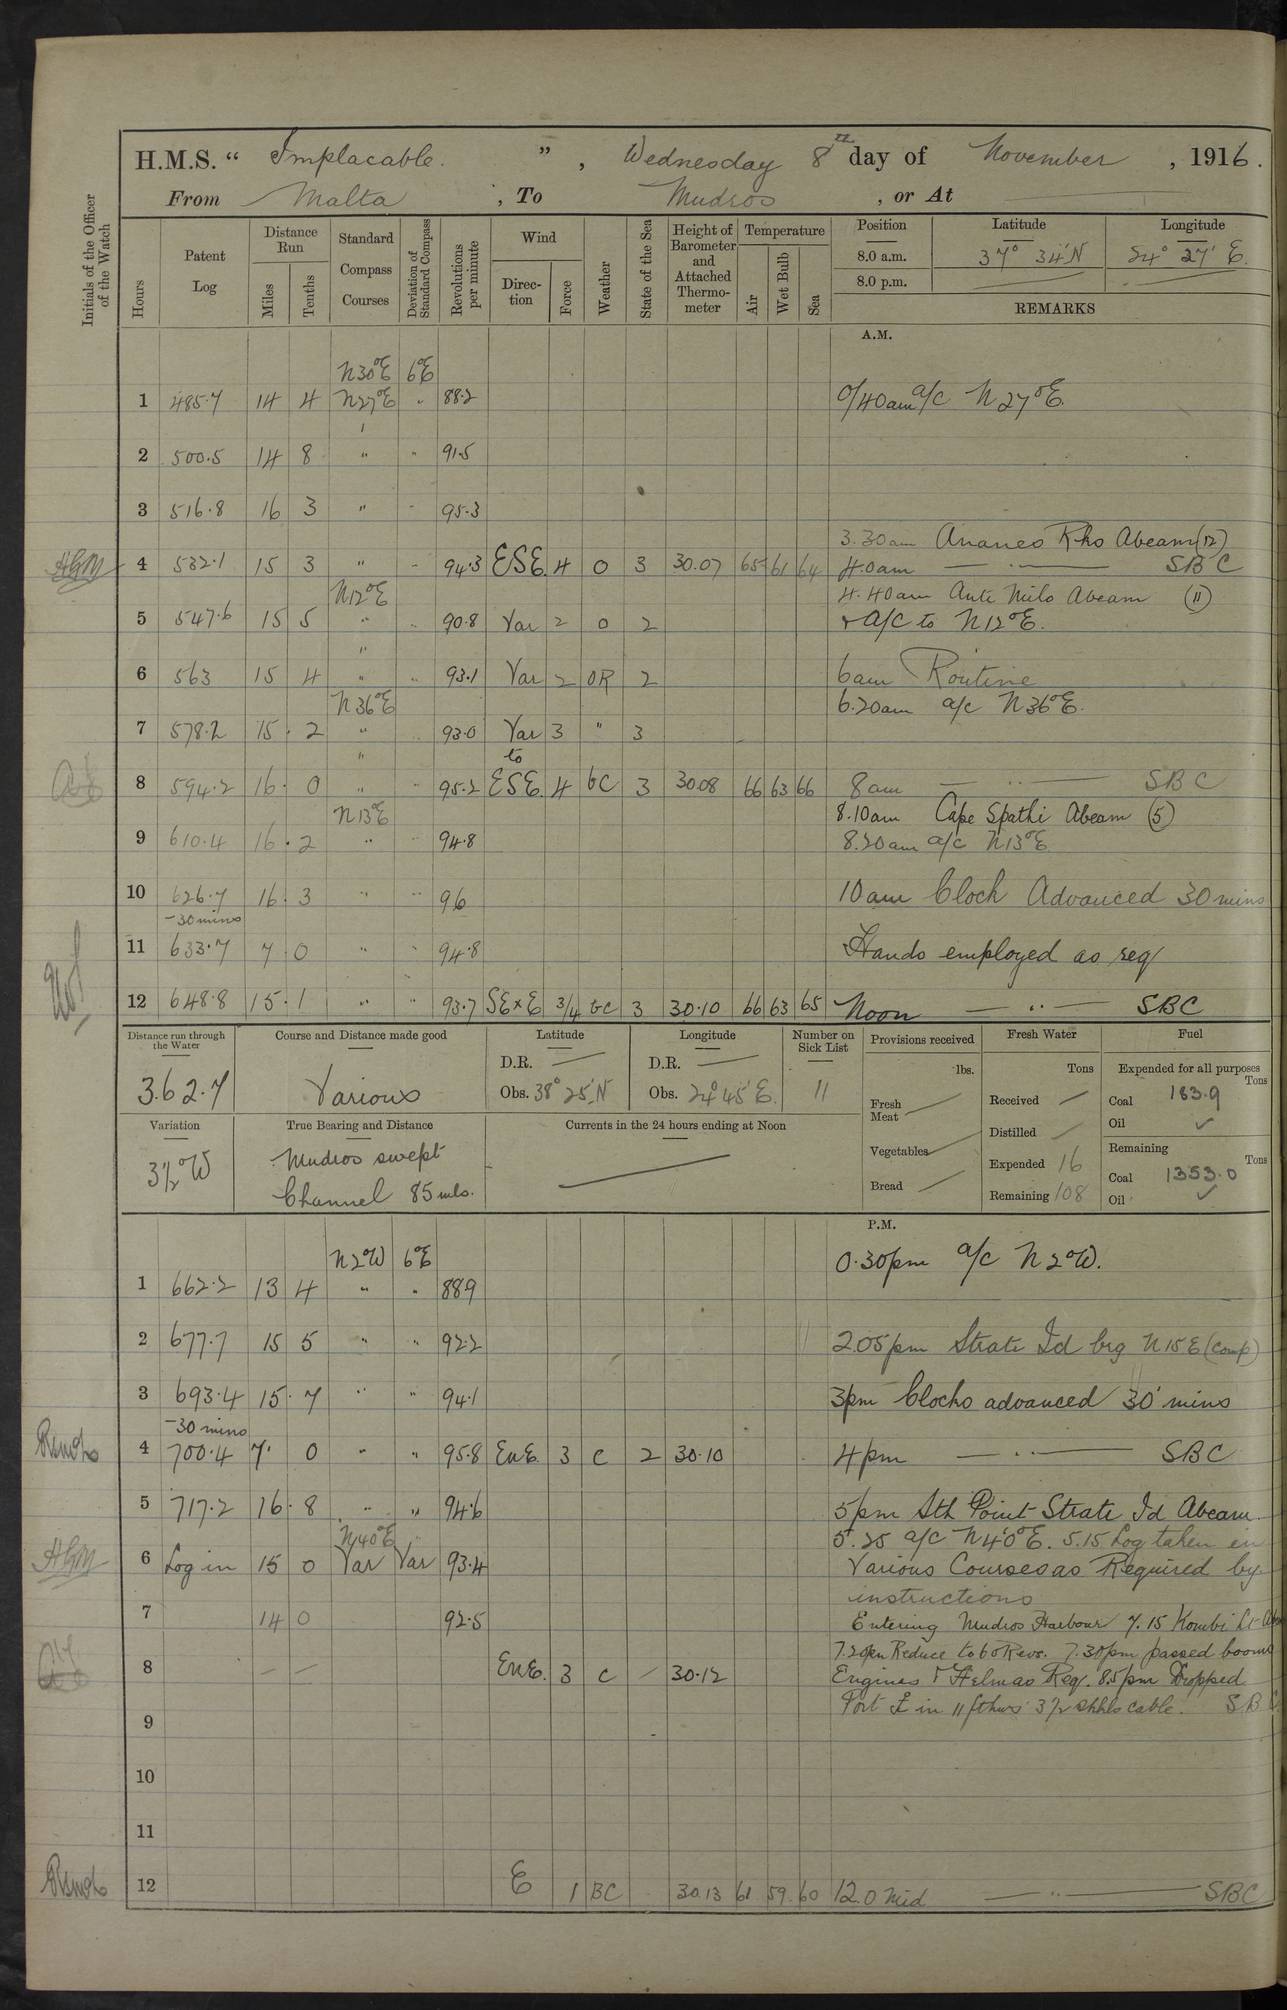 H.M.S. “ Implacable. ” , Wednesday 8th day of November , 1916.
From Malta , To Mudros , or At
Initials of the Officer of the Watch
Hours
Patent Log
Distance Run
Miles
Tenths
Standard Compass Courses
Deviation of Standard Compass
Revolutions per minute
Wind
Direction
Force
Weather
State of the Sea
Height of Barometer and Attached Thermometer
Temperature
Air
Wet Bulb
Sea
Position Latitude Longitude
8.0 a.m. 37° 34' N 24° 27' E.
8.0 p.m.
REMARKS
A.M.
N30°E 6°E
1 485.7 14 4 N27°E " 88.2 0/40am a/c N27°E.
2 500.5 14 8 " " 91.5
3 516.8 16 3 " - 95.3
3.30am Ananeo Rho Abeam (12)
HGM 4 532.1 15 3 " - 94.3 ESE. 4 O 3 30.07 65 61 64 4.0am SBC
N12°E 4.40am Anti Milo Abeam (11)
5 547.6 15 5 " " 90.8 Var 2 O 2 + A/C to N12°E.
6 563 15 4 " " 93.1 Var 2 OR 2 6am Routine
N36°E 6.20am a/c N36°E.
7 578.2 15.2 " " 93.0 Var 3 " 3
to
8 594.2 16.0 " " 95.2 ESE. 4 bc 3 30.08 66 63 66 8am SBC
N13°E 8.10am Cape Spathi Abeam (5)
9 610.4 16.2 " 94.8 8.20am a/c N13°E
10 626.7 16.3 " " 96 10am Clock Advanced 30 mins
-30 mins
11 633.7 7.0 " " 94.8 Hands employed as req
12 648.8 15.1 " " 93.7 SE x E 3/4 bc 3 30.10 66 63 65 Noon SBC
Distance run through the Water
362.7
Course and Distance made good
Various
Latitude
D.R.
Obs. 38° 25' N
Longitude
D.R.
Obs. 24° 45' E.
Number on Sick List
11
Provisions received
lbs.
Fresh Meat
Vegetables
Bread
Fresh Water
Tons
Received
Distilled
Expended 16
Remaining 108
Fuel
Expended for all purposes
Tons
Coal 163.9
Oil ✓
Remaining
Tons
Coal 1353.0
Oil ✓
Variation
3½°W
True Bearing and Distance
Mudros swept
Channel 85 mls.
Currents in the 24 hours ending at Noon
P.M.
N2°W 6°E 0.30pm a/c N2°W.
1 662.2 13 4 " " 88.9
2 677.7 15 5 " " 92.2 2.05pm Strate Id brg N15E (comp)
3 693.4 15.7 " " 94.1 3pm Clocks advanced 30 mins
-30 mins
4 700.4 7. 0 " " 95.8 EnE. 3 C 2 30.10 4pm SBC
5 717.2 16.8 " " 94.6 5pm Sth Point Strate Id Abeam.
N40°E 5.25 a/c N40°E. 5.15 Log taken in
HGM 6 Log in 15 0 Var Var 93.4 Various Courses as Required by
instructions
7 14 0 92.5 Entering Mudros Harbour 7.15 Kombi Lt
7.20pm Reduce to 60 Revs. 7.30pm passed booms
8 — — EnE. 3 C 30.12 Engines & Helm as Req. 8.5pm Dropped
9 Port in 11 fthms 3½ shkls cable. SBC
10
11
12 E 1 BC 30.13 61 59 60 12.0 Mid SBC